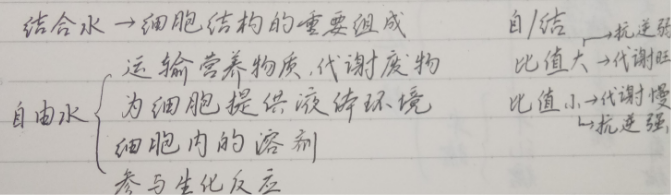 结合水→细胞结构的重要组成
自由水
运输营养物质,代谢废物
为细胞提供液体环境
细胞内的溶剂
参与生化反应
自/结
→抗逆弱
比值大→代谢旺
比值小→代谢慢
→抗逆强